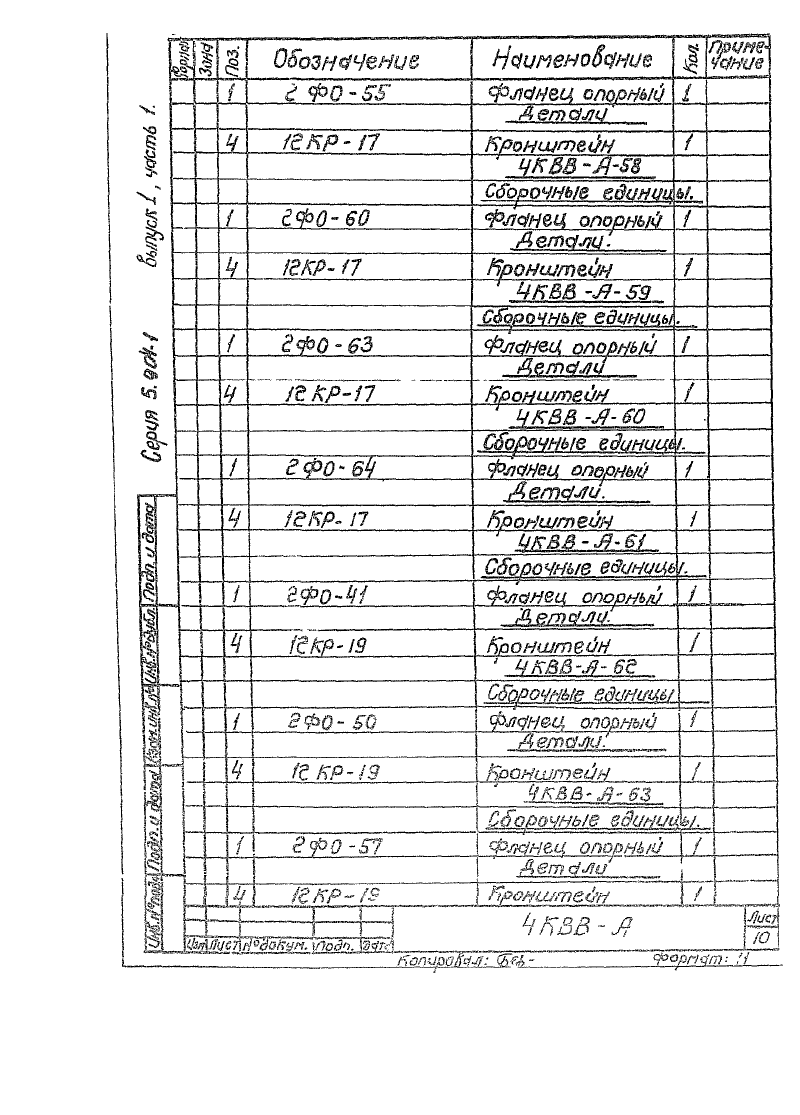 Формат Зона Поз. Обозначение Наименование Кол. Приме-
чание
1 2ФО-55 Фланец опорный 1
Детали
4 12КР-17 Кронштейн 1
4КВВ-А-58
Сборочные единицы.
1 2ФО-60 Фланец опорный 1
Детали.
4 12КР-17 Кронштейн 1
4КВВ-А-59
Сборочные единицы.
1 2ФО-63 Фланец опорный 1
Детали
4 12КР-17 Кронштейн 1
4КВВ-А-60
Сборочные единицы.
1 2ФО-64 Фланец опорный 1
Детали.
4 12КР-17 Кронштейн 1
4КВВ-А-61
Сборочные единицы.
1 2ФО-41 Фланец опорный 1
Детали.
4 12КР-19 Кронштейн 1
4КВВ-А-62
Сборочные единицы
1 2ФО-50 Фланец опорный 1
Детали.
4 12КР-19 Кронштейн 1
4КВВ-А-63
Сборочные единицы.
1 2ФО-57 Фланец опорный 1
Детали
4 12КР-19 Кронштейн 1
Серия 5.904-1 Выпуск 1, часть 1.
Инв.№подл. Подп. и дата Взам.инв.№ Инв.№дубл. Подп. и дата
Изм Лист №докум. Подп. Дата
4КВВ-А
Лист
10
Копировал:
Формат: 11